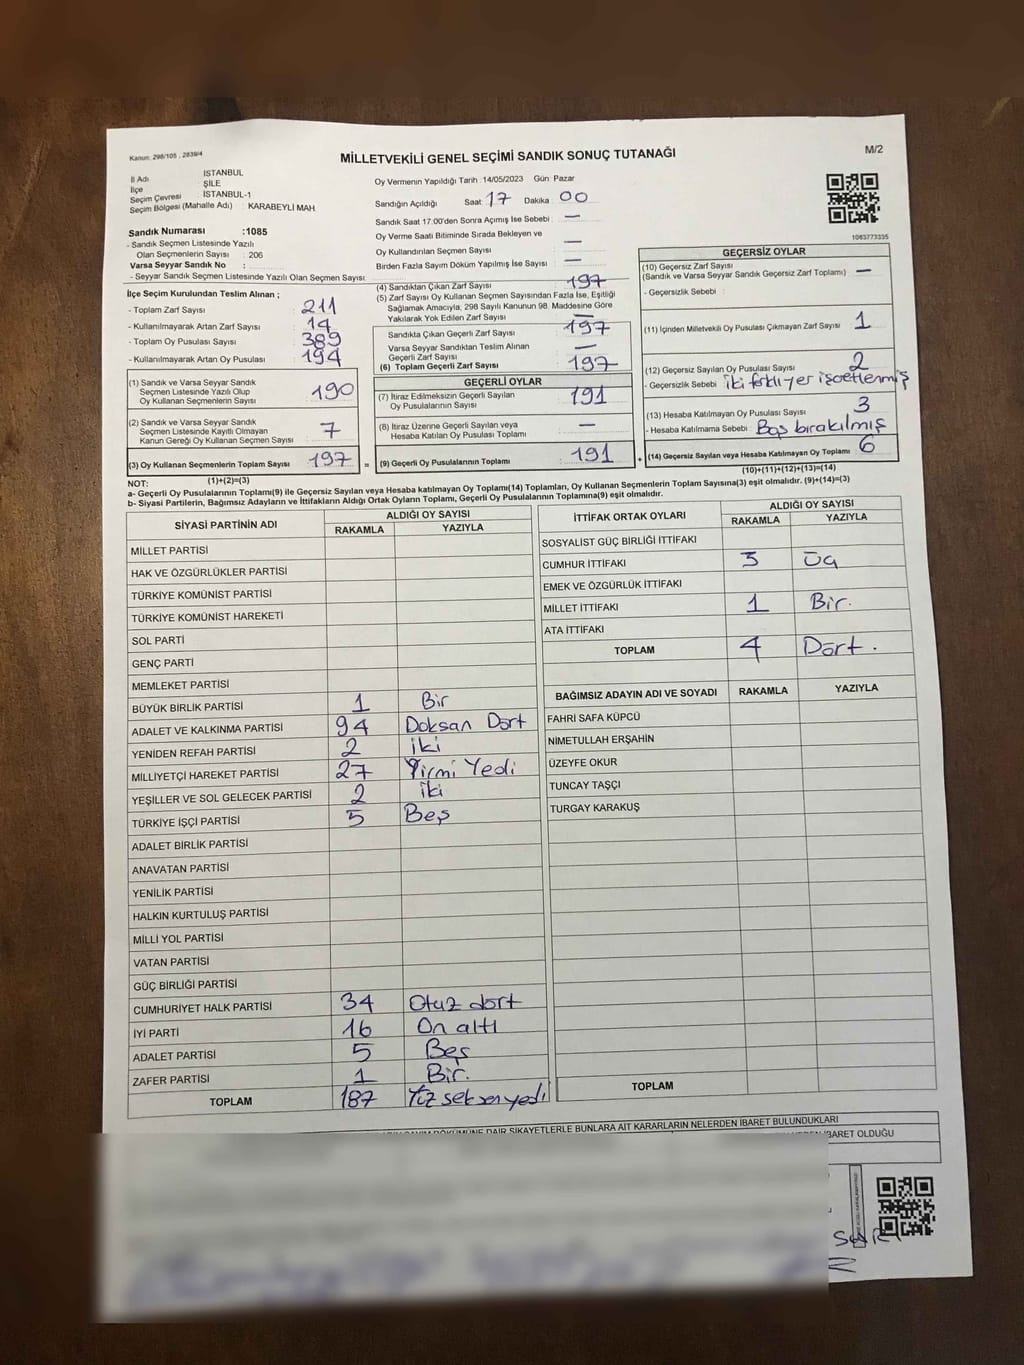 Kanun: 298/105 , 2839/4
MİLLETVEKİLİ GENEL SEÇİMİ SANDIK SONUÇ TUTANAĞI
M/2
İl Adı İSTANBUL
İlçe ŞİLE
Seçim Çevresi İSTANBUL-1
Seçim Bölgesi (Mahalle Adı) : KARABEYLİ MAH.
Sandık Numarası :1085
- Sandık Seçmen Listesinde Yazılı
Olan Seçmenlerin Sayısı : 206
Varsa Seyyar Sandık No :
- Seyyar Sandık Seçmen Listesinde Yazılı Olan Seçmen Sayısı:
Oy Vermenin Yapıldığı Tarih :14/05/2023 Gün Pazar
Sandığın Açıldığı Saat 17 Dakika 00
Sandık Saat 17:00'den Sonra Açılmış İse Sebebi : —
Oy Verme Saati Bitiminde Sırada Bekleyen ve
Oy Kullandırılan Seçmen Sayısı —
Birden Fazla Sayım Döküm Yapılmış İse Sayısı —
1063773335
İlçe Seçim Kurulundan Teslim Alınan ;
- Toplam Zarf Sayısı : 211
- Kullanılmayarak Artan Zarf Sayısı : 14
- Toplam Oy Pusulası Sayısı : 389
- Kullanılmayarak Artan Oy Pusulası : 194
(1) Sandık ve Varsa Seyyar Sandık
Seçmen Listesinde Yazılı Olup
Oy Kullanan Seçmenlerin Sayısı 190
(2) Sandık ve Varsa Seyyar Sandık
Seçmen Listesinde Kayıtlı Olmayan
Kanun Gereği Oy Kullanan Seçmen Sayısı 7
(3) Oy Kullanan Seçmenlerin Toplam Sayısı 197
(1)+(2)=(3)
(4) Sandıktan Çıkan Zarf Sayısı 197
(5) Zarf Sayısı Oy Kullanan Seçmen Sayısından Fazla İse, Eşitliği
Sağlamak Amacıyla; 298 Sayılı Kanunun 98. Maddesine Göre
Yakılarak Yok Edilen Zarf Sayısı —
Sandıkta Çıkan Geçerli Zarf Sayısı 197
Varsa Seyyar Sandıktan Teslim Alınan
Geçerli Zarf Sayısı —
(6) Toplam Geçerli Zarf Sayısı 197
GEÇERLİ OYLAR
(7) İtiraz Edilmeksizin Geçerli Sayılan
Oy Pusulalarının Sayısı 191
(8) İtiraz Üzerine Geçerli Sayılan veya
Hesaba Katılan Oy Pusulası Toplamı —
= (9) Geçerli Oy Pusulalarının Toplamı 191 +
GEÇERSİZ OYLAR
(10) Geçersiz Zarf Sayısı
(Sandık ve Varsa Seyyar Sandık Geçersiz Zarf Toplamı) —
- Geçersizlik Sebebi :
(11) İçinden Milletvekili Oy Pusulası Çıkmayan Zarf Sayısı 1
(12) Geçersiz Sayılan Oy Pusulası Sayısı 2
- Geçersizlik Sebebi : iki farklı yer işaretlenmiş
(13) Hesaba Katılmayan Oy Pusulası Sayısı 3
- Hesaba Katılmama Sebebi : Boş bırakılmış
(14) Geçersiz Sayılan veya Hesaba Katılmayan Oy Toplamı 6
(10)+(11)+(12)+(13)=(14)
NOT:
a- Geçerli Oy Pusulalarının Toplamı(9) ile Geçersiz Sayılan veya Hesaba katılmayan Oy Toplamı(14) Toplamları, Oy Kullanan Seçmenlerin Toplam Sayısına(3) eşit olmalıdır. (9)+(14)=(3)
b- Siyasi Partilerin, Bağımsız Adayların ve İttifakların Aldığı Ortak Oyların Toplamı, Geçerli Oy Pusulalarının Toplamına(9) eşit olmalıdır.
SİYASİ PARTİNİN ADI ALDIĞI OY SAYISI
RAKAMLA YAZIYLA
MİLLET PARTİSİ
HAK VE ÖZGÜRLÜKLER PARTİSİ
TÜRKİYE KOMÜNİST PARTİSİ
TÜRKİYE KOMÜNİST HAREKETİ
SOL PARTİ
GENÇ PARTİ
MEMLEKET PARTİSİ
BÜYÜK BİRLİK PARTİSİ 1 Bir
ADALET VE KALKINMA PARTİSİ 94 Doksan Dört
YENİDEN REFAH PARTİSİ 2 iki
MİLLİYETÇİ HAREKET PARTİSİ 27 Yirmi Yedi
YEŞİLLER VE SOL GELECEK PARTİSİ 2 iki
TÜRKİYE İŞÇİ PARTİSİ 5 Beş
ADALET BİRLİK PARTİSİ
ANAVATAN PARTİSİ
YENİLİK PARTİSİ
HALKIN KURTULUŞ PARTİSİ
MİLLİ YOL PARTİSİ
VATAN PARTİSİ
GÜÇ BİRLİĞİ PARTİSİ
CUMHURİYET HALK PARTİSİ 34 Otuz dört
İYİ PARTİ 16 On altı
ADALET PARTİSİ 5 Beş
ZAFER PARTİSİ 1 Bir.
TOPLAM 187 Yüz seksen yedi
İTTİFAK ORTAK OYLARI ALDIĞI OY SAYISI
RAKAMLA YAZIYLA
SOSYALİST GÜÇ BİRLİĞİ İTTİFAKI
CUMHUR İTTİFAKI 3 Üç
EMEK VE ÖZGÜRLÜK İTTİFAKI
MİLLET İTTİFAKI 1 Bir.
ATA İTTİFAKI
TOPLAM 4 Dört.
BAĞIMSIZ ADAYIN ADI VE SOYADI RAKAMLA YAZIYLA
FAHRİ SAFA KÜPCÜ
NİMETULLAH ERŞAHİN
ÜZEYFE OKUR
TUNCAY TAŞÇI
TURGAY KARAKUŞ
TOPLAM
DÖKÜMÜNE DAİR ŞİKAYETLERLE BUNLARA AİT KARARLARIN NELERDEN İBARET BULUNDUKLARI
İBARET OLDUĞU